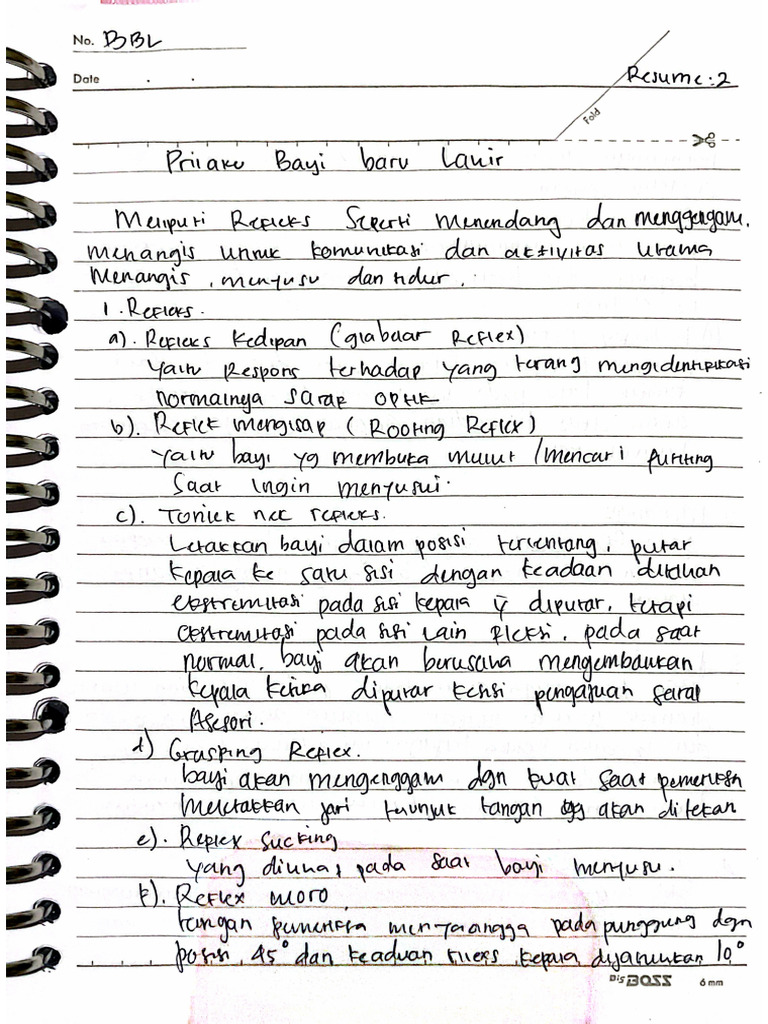 No. BBL
Date . .
Resume : 2
Fold
Prilaku Bayi baru Lahir
Meliputi Refleks Seperti menendang dan menggengam.
menangis untuk komunikasi dan aktivitas utama
Menangis, menyusu dan tidur.
1. Refleks.
a). Refleks Kedipan (glabelar Reflex)
yaitu Respons terhadap yang terang mengidentifikasi
normalnya Saraf optik
b). Reflek mengisap (Rooting Reflex)
yaitu bayi yg membuka mulut / mencari putting
Saat Ingin menyusui.
c). Toniek nek refleks.
Letakkan bayi dalam posisi terlentang, putar
kepala ke satu sisi dengan keadaan ditahan
ekstremitasi pada sisi kepala yg diputar, tetapi
ekstremitasi pada sisi lain fleksi, pada saat
normal, bayi akan berusaha mengembalikan
kepala ketika diputar kesisi pengajuan saraf
Asesori.
d) Grasping Reflex.
bayi akan mengenggam dgn kuat saat pemeriksa
meletakkan jari telunjuk tangan akan ditekan
e). Reflex Sucking
yang dilihat pada saat bayi menyusu.
f). Reflex moro
tangan pemeriksa menyalangga pada punggung dgn
posisi 45° dan keaduan fileks, kepala dijatuhkan 10°
BigBOSS 6 mm